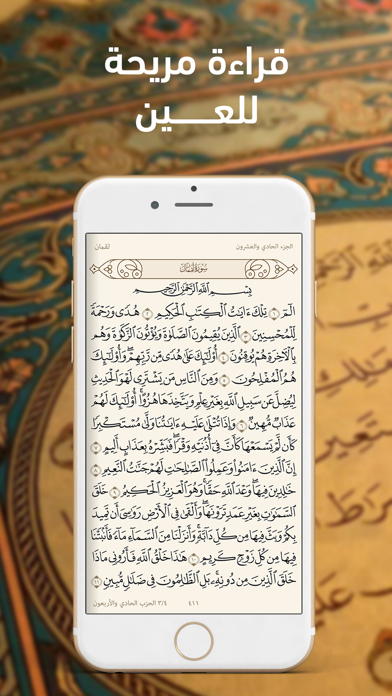 قراءة مريحة
للعـــــين
الجزء الحادي والعشرون
لقمان
سورة لقمان
بِسْمِ اللَّهِ الرَّحْمَٰنِ الرَّحِيمِ
الٓمٓ ١ تِلْكَ ءَايَٰتُ ٱلْكِتَٰبِ ٱلْحَكِيمِ ٢ هُدًى وَرَحْمَةً
لِّلْمُحْسِنِينَ ٣ ٱلَّذِينَ يُقِيمُونَ ٱلصَّلَوٰةَ وَيُؤْتُونَ ٱلزَّكَوٰةَ وَهُم
بِٱلْءَاخِرَةِ هُمْ يُوقِنُونَ ٤ أُو۟لَٰٓئِكَ عَلَىٰ هُدًى مِّن رَّبِّهِمْ ۖ وَأُو۟لَٰٓئِكَ
هُمُ ٱلْمُفْلِحُونَ ٥ وَمِنَ ٱلنَّاسِ مَن يَشْتَرِى لَهْوَ ٱلْحَدِيثِ
لِيُضِلَّ عَن سَبِيلِ ٱللَّهِ بِغَيْرِ عِلْمٍ وَيَتَّخِذَهَا هُزُوًا ۚ أُو۟لَٰٓئِكَ لَهُمْ
عَذَابٌ مُّهِينٌ ٦ وَإِذَا تُتْلَىٰ عَلَيْهِ ءَايَٰتُنَا وَلَّىٰ مُسْتَكْبِرًا
كَأَن لَّمْ يَسْمَعْهَا كَأَنَّ فِىٓ أُذُنَيْهِ وَقْرًا ۖ فَبَشِّرْهُ بِعَذَابٍ أَلِيمٍ ٧
إِنَّ ٱلَّذِينَ ءَامَنُوا۟ وَعَمِلُوا۟ ٱلصَّٰلِحَٰتِ لَهُمْ جَنَّٰتُ ٱلنَّعِيمِ ٨
خَٰلِدِينَ فِيهَا ۖ وَعْدَ ٱللَّهِ حَقًّا ۚ وَهُوَ ٱلْعَزِيزُ ٱلْحَكِيمُ ٩ خَلَقَ
ٱلسَّمَٰوَٰتِ بِغَيْرِ عَمَدٍ تَرَوْنَهَا ۖ وَأَلْقَىٰ فِى ٱلْأَرْضِ رَوَٰسِىَ أَن تَمِيدَ
بِكُمْ وَبَثَّ فِيهَا مِن كُلِّ دَآبَّةٍ ۚ وَأَنزَلْنَا مِنَ ٱلسَّمَآءِ مَآءً فَأَنۢبَتْنَا
فِيهَا مِن كُلِّ زَوْجٍ كَرِيمٍ ١٠ هَٰذَا خَلْقُ ٱللَّهِ فَأَرُونِى مَاذَا
خَلَقَ ٱلَّذِينَ مِن دُونِهِۦ ۚ بَلِ ٱلظَّٰلِمُونَ فِى ضَلَٰلٍ مُّبِينٍ ١١
٤١١
٣/٤ الحزب الحادي والأربعون